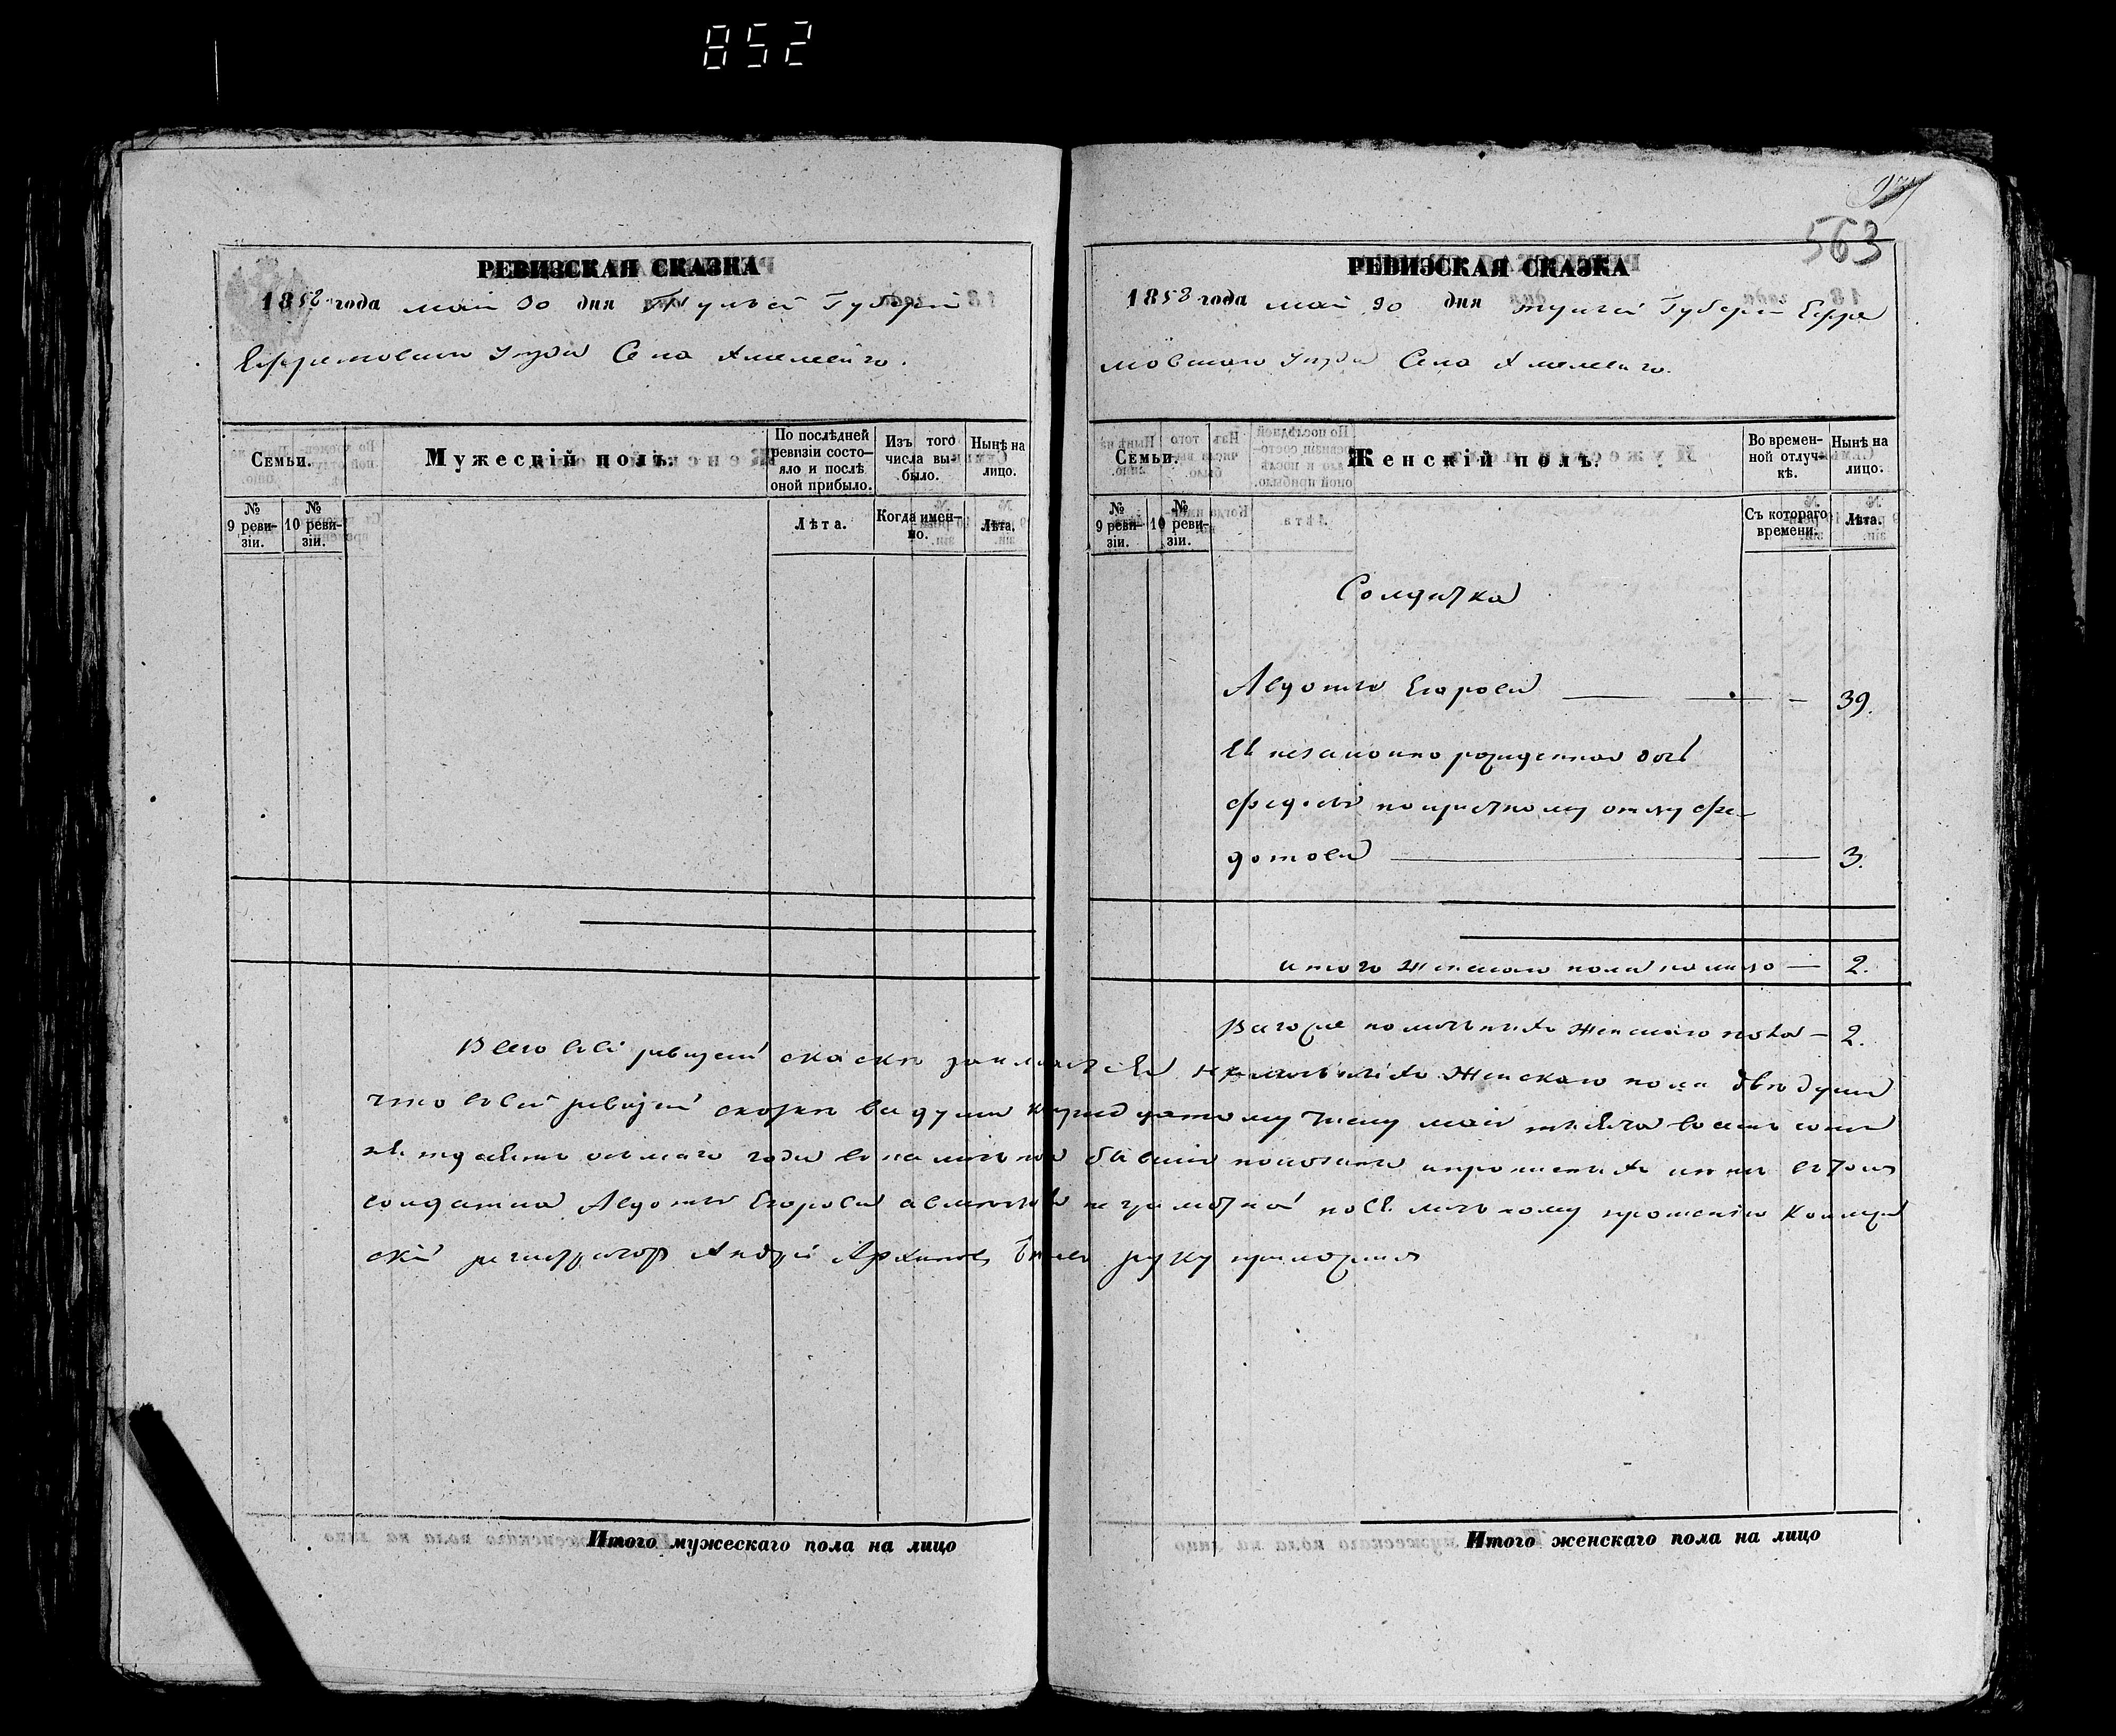 852
РЕВИЗСКАЯ СКАЗКА
1858 года мая 30 дня Тульской Губернии
Ефремовскаго уезда Села
Семьи.
Мужескій полъ.
По послѣдней ревизіи состояло и послѣ оной прибыло.
Изъ того числа выбыло.
Нынѣ на лицо.
№ 9 ревизіи.
№ 10 ревизіи.
Лѣта.
Когда именно.
Лѣта.
Итого мужескаго пола на лицо
563
РЕВИЗСКАЯ СКАЗКА
1858 года мая 30 дня Тульской Губернии Ефре
мовскаго уезда Села
Семьи.
Женскій полъ.
Во временной отлучкѣ.
Нынѣ на лицо.
№ 9 ревизіи.
№ 10 ревизіи.
Съ котораго времени.
Лѣта.
Солдатка
Авдотья Егорова — 39.
Ея незаконно рожденная дочь
по крестному отцу Фе
дотова — 3.
итого женскаго пола на лицо — 2.
наличныхъ женскаго пола — 2.
Всего въ сей ревизской скаске наличныхъ женскаго пола две души
что въ сей ревизской скаске все души к тридцатому числу мая тысяча восемь сотъ
пятьдесятъ осмаго года в наличности бывшие показаны и прописныхъ нетъ в томъ
солдатка Авдотья Егорова а вместо неграмотной по ее личному прошению Коллеж
ский регистраторъ Андрей Архипов руку приложилъ
Итого женскаго пола на лицо